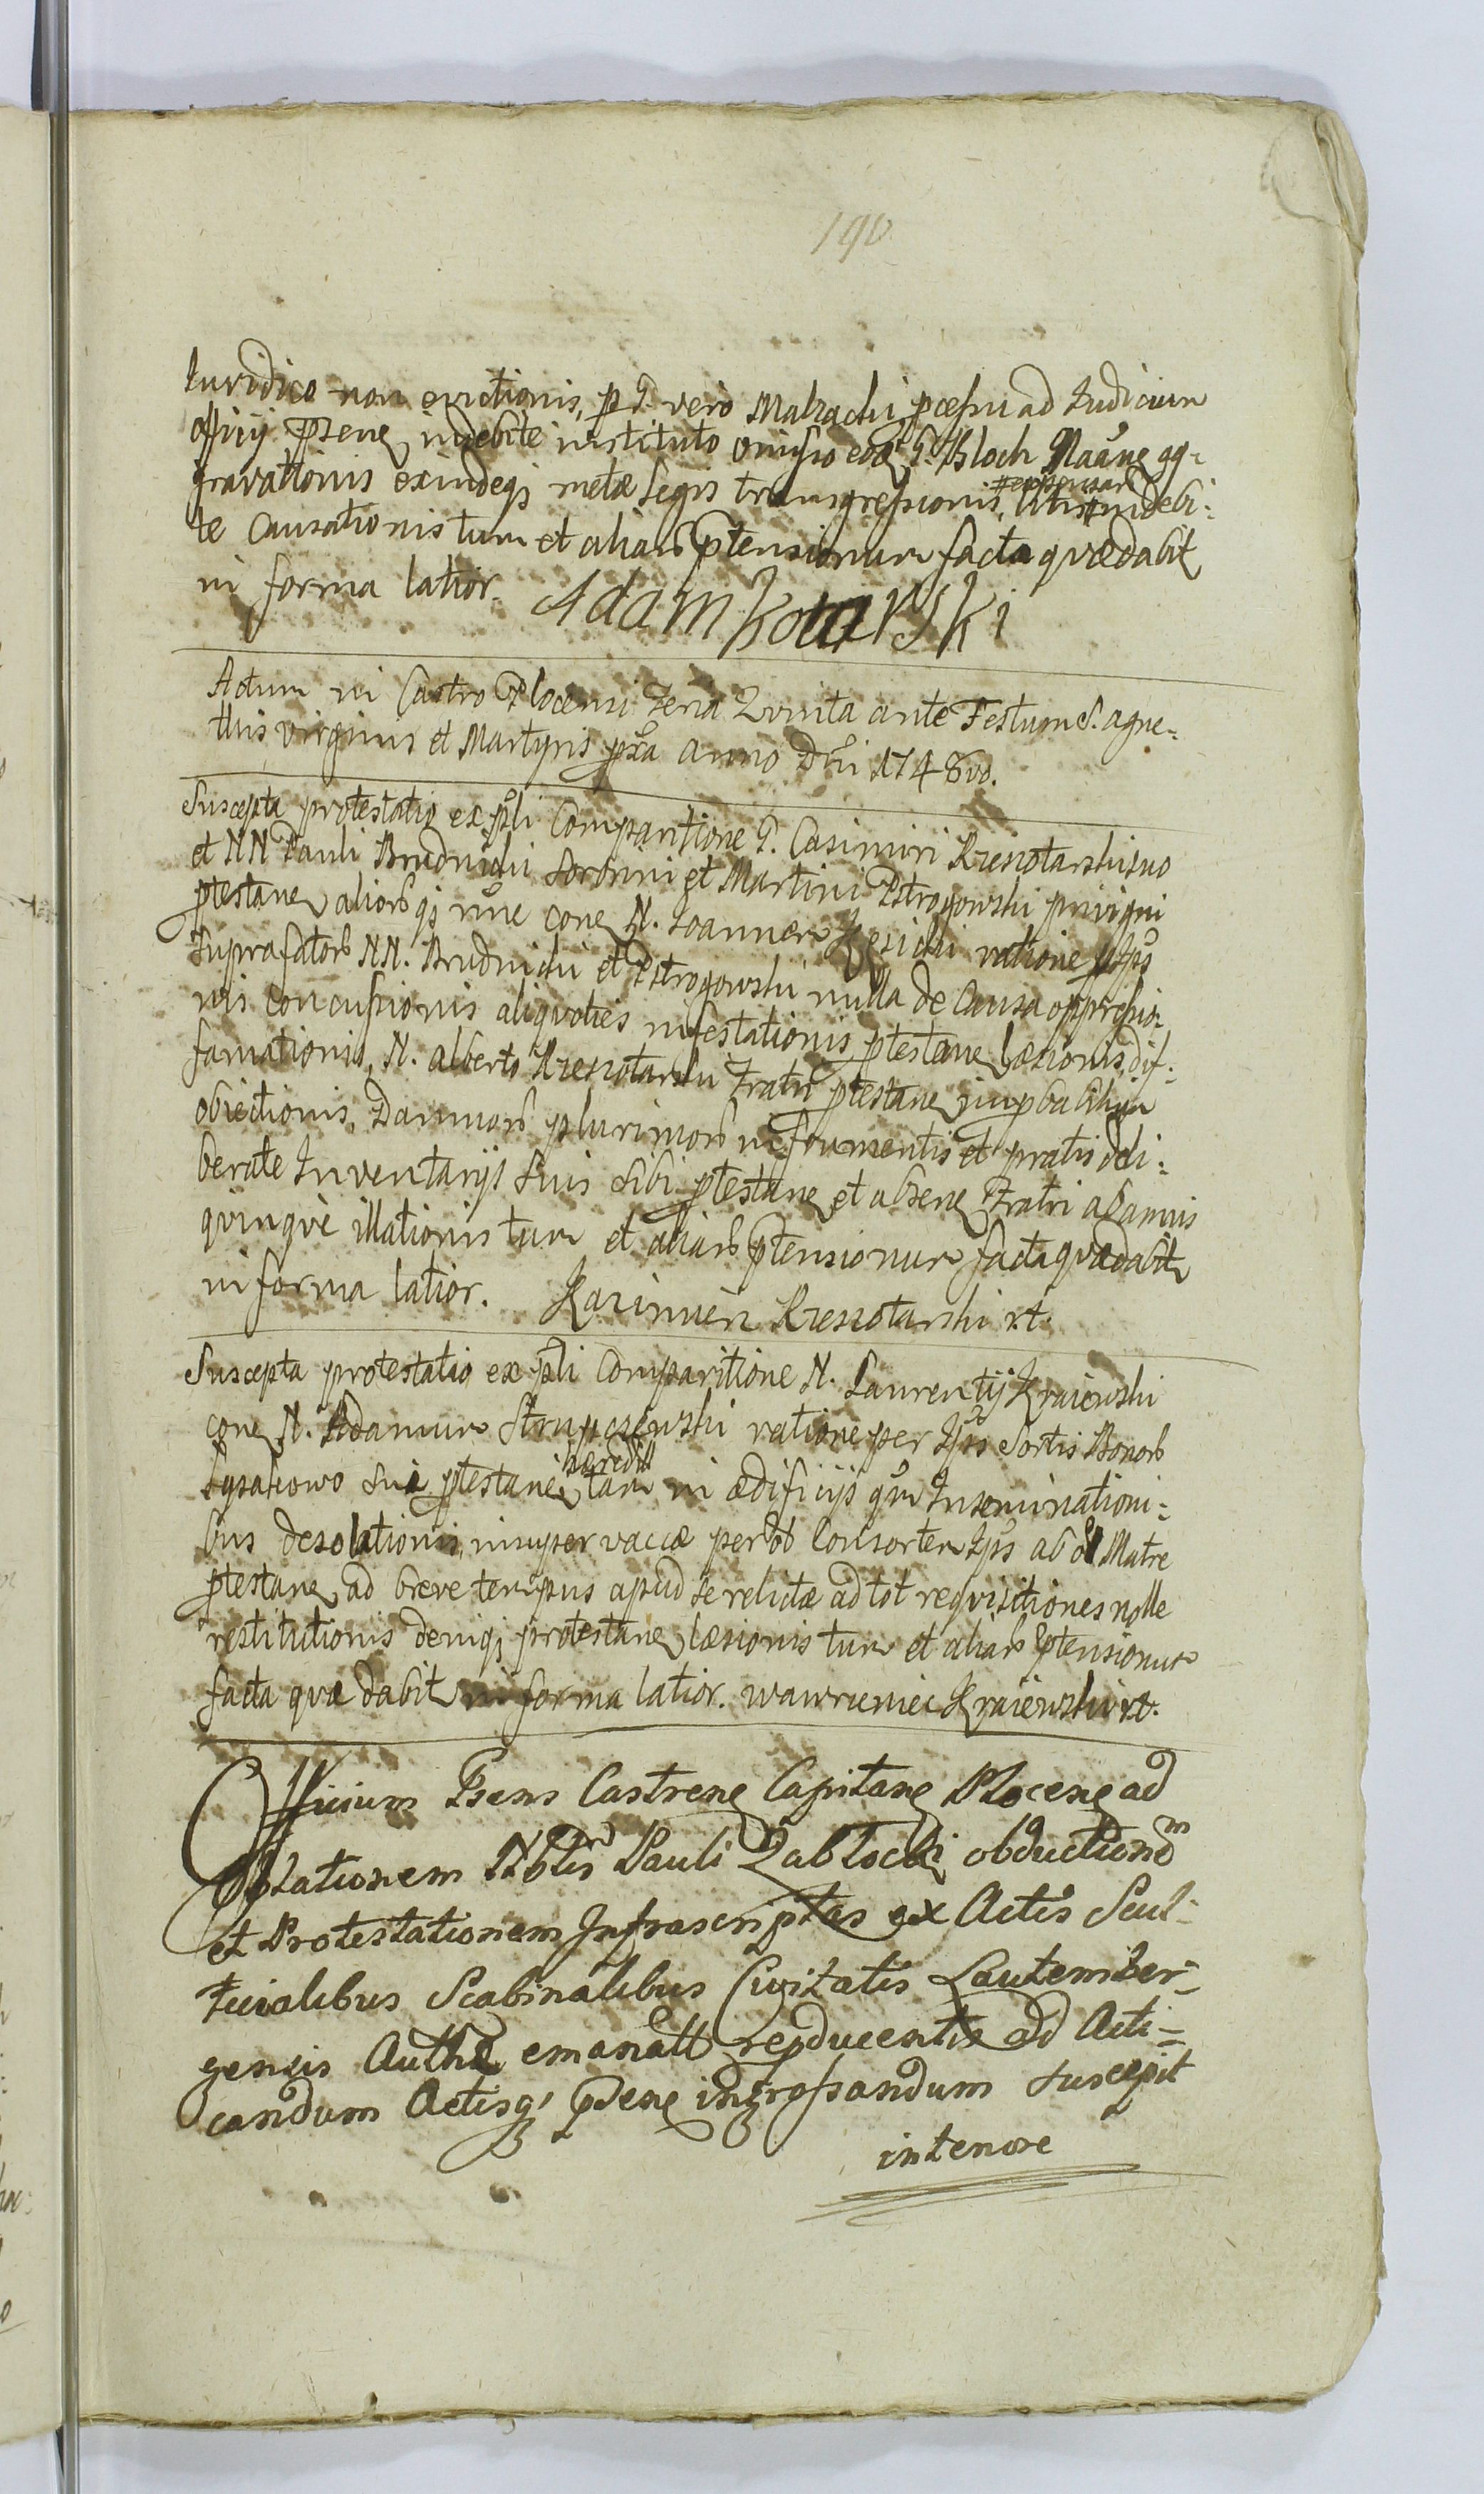 190
Iuridico non evictionis, p G. vero Malzachi pcessu ad Iudicium
officij psene indebite instituto omisso eod G. Bloch Naane ag=
gravationis exindeqs metæ Legis transgressionis, Litis
expensar
indebi=
te causationis tum et aliar ptensionum facta quæ dabit
in forma latior. Adam Kotarski
Actum in Castro Plocensi Feria Quinta ante Festum S. Agne=
this virginis et Martyris pxa Anno Dni 1748vo.
Suscepta protestatio ex pli Comparitione G. Casimiri Krzesiotarski suo
et NN Pauli Brudnicki Sororini et Martini Pstrogowski privigni
ptestane alior qs nne cone N. Joannem Kesicki ratione p Ips
suprafator NN. Brudnicki et Pstrogowski nulla de causa oppressio=
nis concussionis aliquoties infestationis ptestane læsionis dif=
famationis, N. Alberto Krzesiotarski Fratri ptestane improbabilium
obiectionis, Damnor plurimor in frumentis et pratis deli=
berate Inventarijs suis sibi ptestane et absene Fratri ab annis
quinque illationis tum et aliar ptensionum facta quæ dabit
in forma latior. Kazimierz Krzesiotarski rt.
Suscepta protestatio ex pli Comparitione N. Laurentij Kraiewski
cone N. Adamum Strupczewski ratione per Ips Sortis Bonor
Lysakowo suæ ptestane
hæredit
tam in ædificijs qm Inseminationi=
bus desolationis, insuper vaccæ per ob Consortem Ips ab ol Matre
ptestane ad breve tempus apud se relictæ ad tot requisitiones nolle
restitutionis deniqs protestane læsionis tum et aliar ptensionum
facta quæ dabit in forma latior. Wawrzeniec Kraiewski rt.
Officium Psens Castrene Capitane Plocene ad
Oblationem Nblis Pauli Zablocki obductionem
et Protestationem Infrascriptas ex Actis Scul=
tecialibus Scabinalibus Civitatis Lautember=
gensis Authe emanatt reproducentis ad Acti=
candum Actisqs psene ingrossandum suscepit
in tenore